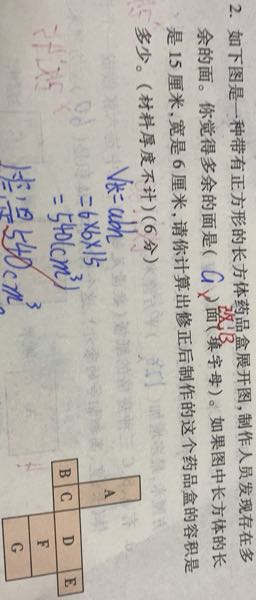 2. 如下图是一种带有正方形的长方体药品盒展开图,制作人员发现存在多
余的面。你觉得多余的面是( G )面(填字母)。如果图中长方体的长
改:B
是 15 厘米,宽是 6 厘米,请你计算出修正后制作的这个药品盒的容积是
多少。(材料厚度不计)(6 分)
V长=abh
=6×6×15
=540(cm³)
540cm³
A
B C D E
F
G